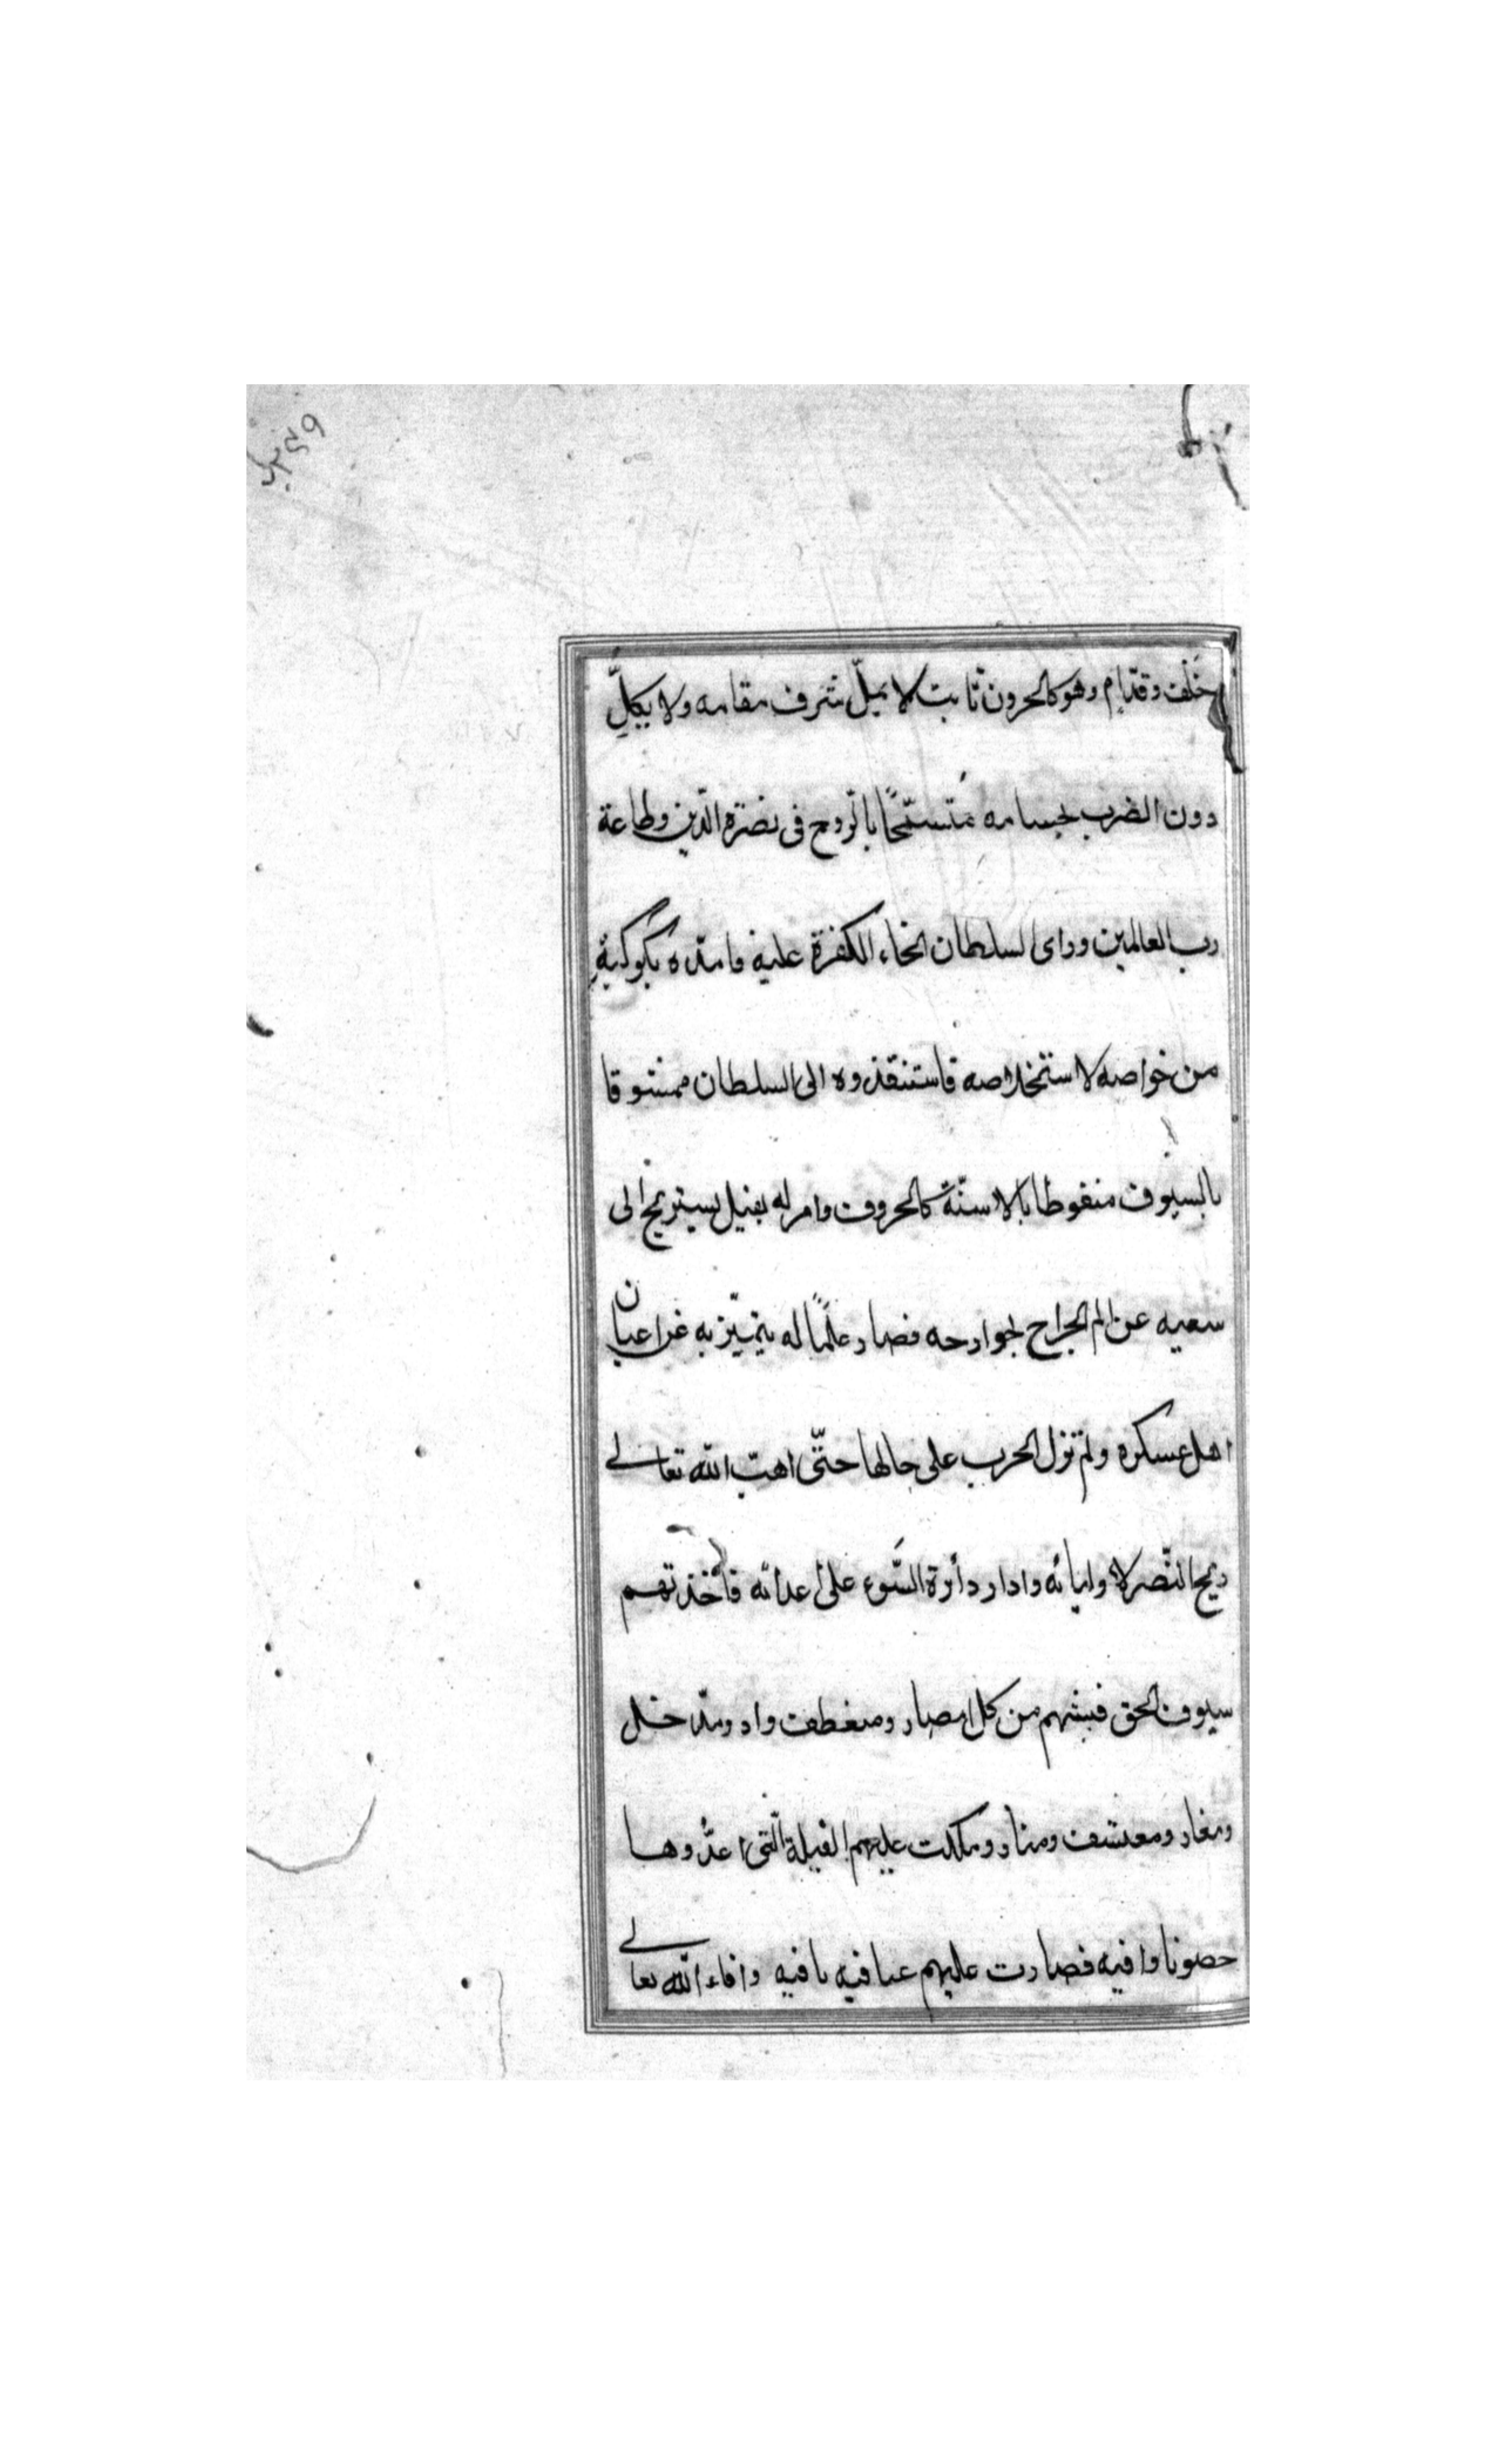 خلف وقدّام وهو كالحرون ثابت لا يملّ شرف مقامه ولا يكلّ
دون الضرب بحسامه متسمّحًا بالرّوح فى نصرة الدّين وطاعة
رب العالمين وراى السلطان انحاء الكفرة عليه فامدّه بكوكبة
من خواصه لاستخلاصه فاستنقذوه الى السلطان ممشوقا
بالسيوف منقوطا بالاسنّة كالحروف وامر له بفيل يستريح الى
سعيه عن الم الجراح بجوارحه فصار علمًا له يتميّز به عن اعيان
اهل عسكره ولم تزل الحرب على حالها حتّى اهبّ الله تعالى
ريح النّصر لاوليائه وادار دائرة السّوء على اعدائه فأخذتهم
سيوف الحق فبشهم من كل مصار ومنعطف واد ومدّخل
ومغار ومعسف ومنار وملكت عليهم الفيلة الّتى اعدّوها
حصونا وافيه فصارت عليهم عافيه يافيه وافاء الله تعالى